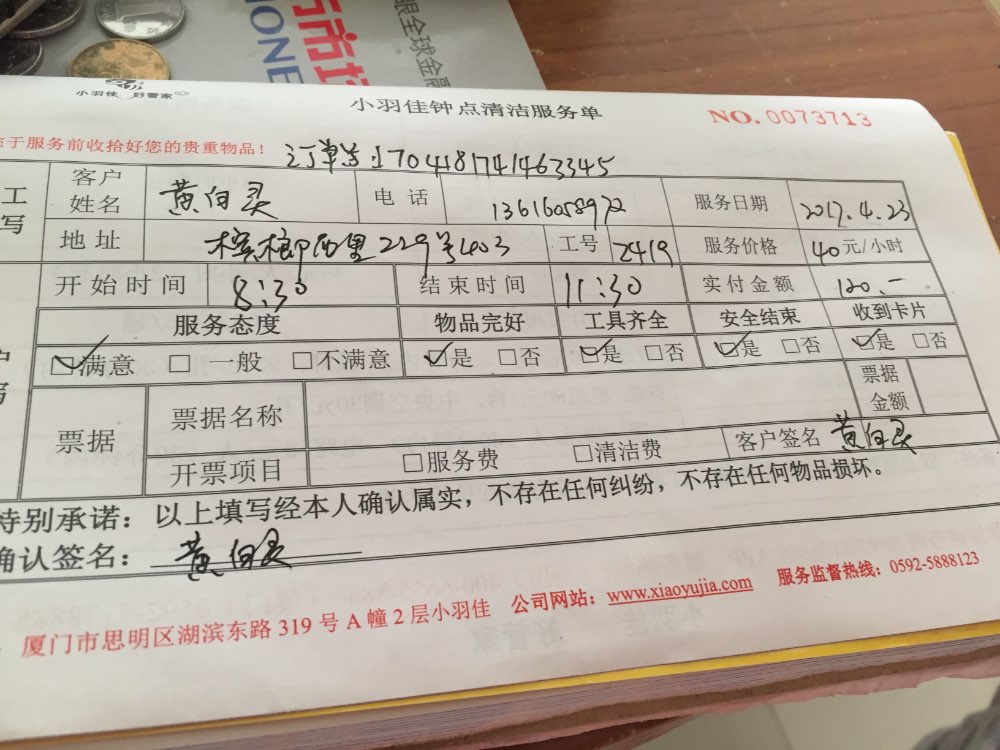 眼全球金融
ONE
小羽佳 好管家
小羽佳钟点清洁服务单
NO. 0073713
于服务前收拾好您的贵重物品！
订单号170418741463345
工
写
客户姓名 黄白灵 电话 13616058972 服务日期 2017.4.23
地址 槟榔西里229号403 工号 2419 服务价格 40元/小时
开始时间 8:30 结束时间 11:30 实付金额 120.-
服务态度 物品完好 工具齐全 安全结束 收到卡片
☑满意 □一般 □不满意 ☑是 □否 ☑是 □否 ☑是 □否 ☑是 □否
票据 票据名称 票据金额
开票项目 □服务费 □清洁费 客户签名 黄白灵
特别承诺：以上填写经本人确认属实，不存在任何纠纷，不存在任何物品损坏。
确认签名：黄白灵
厦门市思明区湖滨东路 319 号 A 幢 2 层小羽佳 公司网站：www.xiaoyujia.com 服务监督热线：0592-5888123